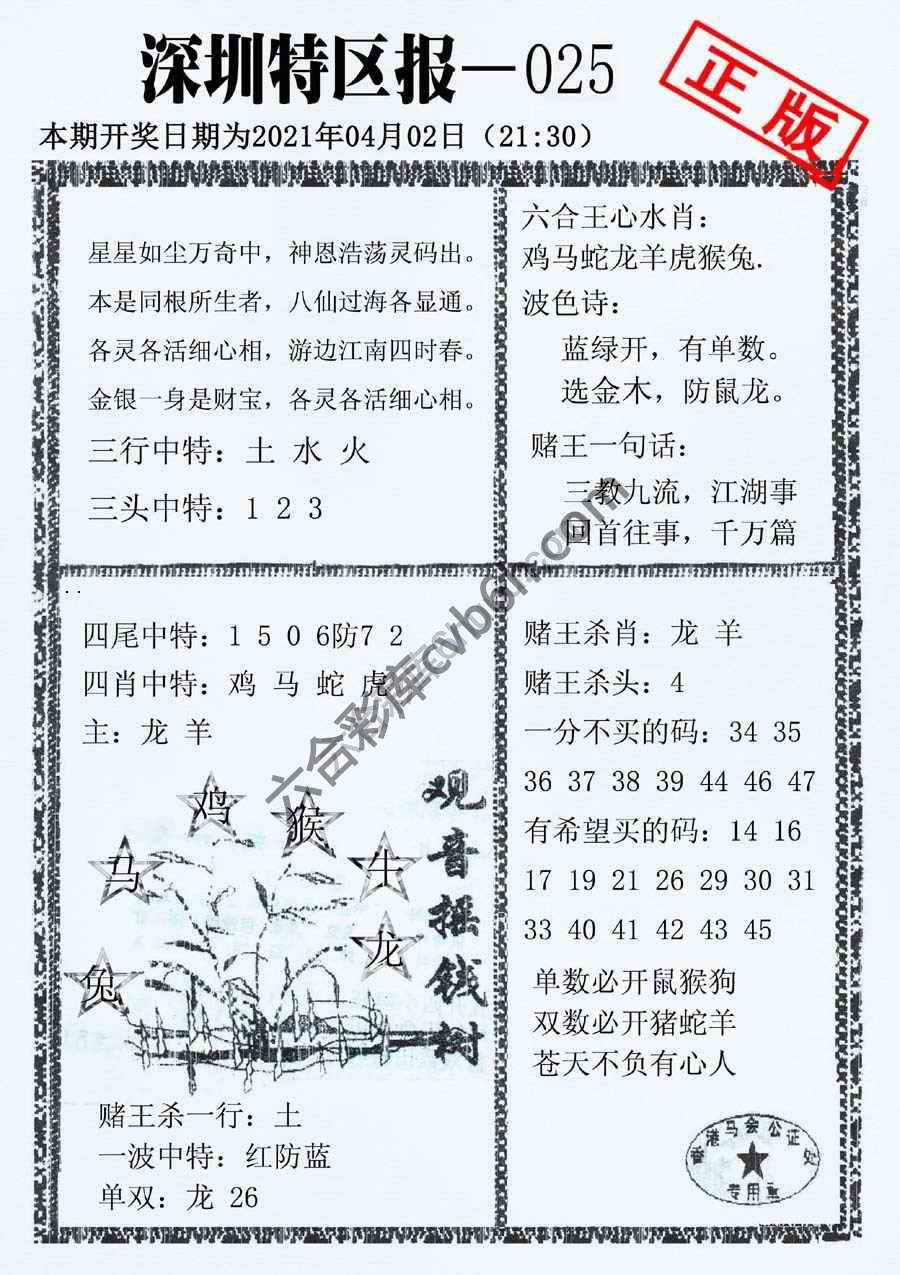 深圳特区报—025
正版
本期开奖日期为2021年04月02日（21:30）
星星如尘万奇中，神恩浩荡灵码出。
本是同根所生者，八仙过海各显通。
各灵各活细心相，游边江南四时春。
金银一身是财宝，各灵各活细心相。
三行中特：土 水 火
三头中特：1 2 3
六合王心水肖：
鸡马蛇龙羊虎猴兔.
波色诗：
蓝绿开，有单数。
选金木，防鼠龙。
赌王一句话：
三教九流，江湖事
回首往事，千万篇
四尾中特：1 5 0 6防7 2
四肖中特：鸡 马 蛇 虎
主：龙 羊
鸡
猴
马
牛
龙
兔
观音摇钱树
赌王杀一行：土
一波中特：红防蓝
单双：龙 26
赌王杀肖：龙 羊
赌王杀头：4
一分不买的码：34 35
36 37 38 39 44 46 47
有希望买的码：14 16
17 19 21 26 29 30 31
33 40 41 42 43 45
单数必开鼠猴狗
双数必开猪蛇羊
苍天不负有心人
香港马会公证处
专用章
六合彩库cvb6h.com